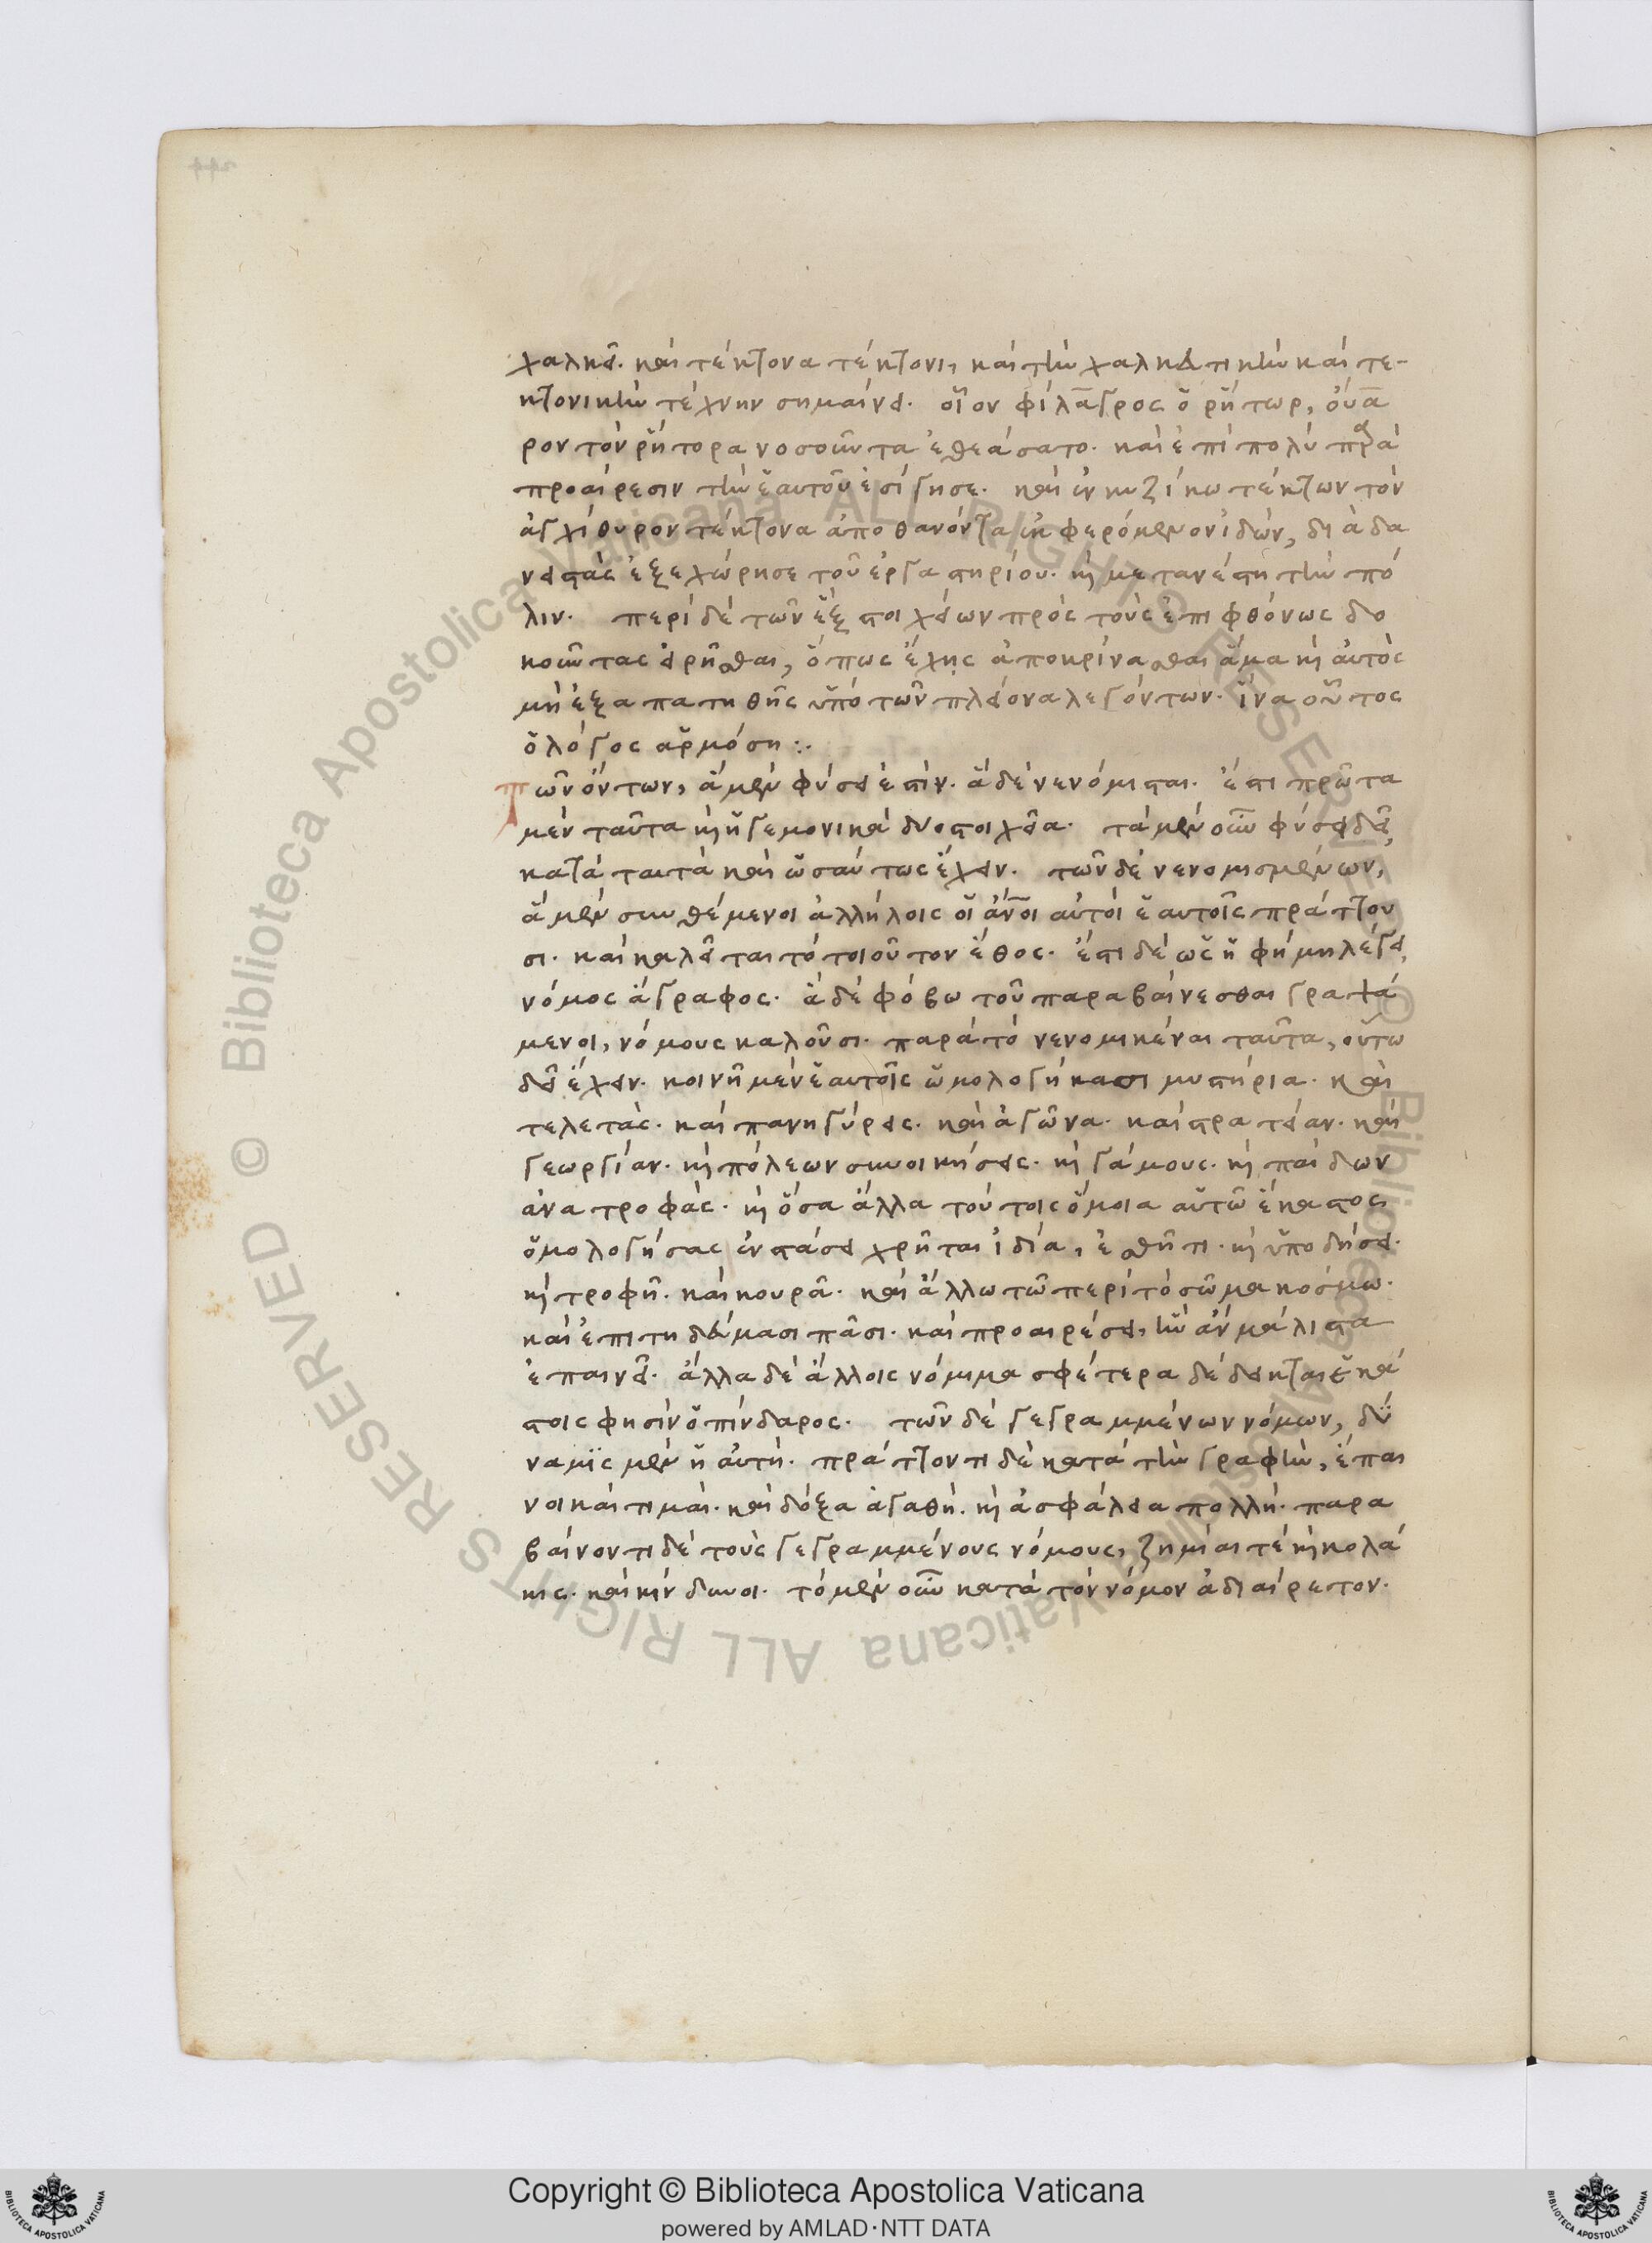 χαλκεῖ. καὶ τέκτονα τέκτονι, καὶ τὴν χαλκευτικὴν καὶ τε-
κτονικὴν τέχνην σημαίνει. οἷον φίλαγρος ὁ ῥήτωρ, οὔα
ρον τὸν ῥήτορα νοσοῦντα ἐθεάσατο. καὶ ἐπὶ πολὺ παρὰ
προαίρεσιν τὴν ἑαυτοῦ ἐσίγησε. καὶ ἐν κυζίκω τέκτων τὸν
ἀγχίθυρον τέκτονα ἀποθανόντα ἐκφερόμενον ἰδών, διὰ δα
νειστὰς ἐξεχώρησε τοῦ ἐργαστηρίου. καὶ μετανέστη τὴν πό
λιν. περὶ δὲ τῶν ἓξ στοιχείων πρὸς τοὺς ἐπιφθόνως δο
κοῦντας εἰρῆσθαι, ὅπως ἔχῃς ἀποκρίνασθαι ἅμα καὶ αὐτὸς
μὴ ἐξαπατηθῆς ὑπὸ τῶν πλείονα λεγόντων. ἵνα οὗτος
ὁ λόγος ἁρμόση :.
Τῶν ὄντων, ἃ μὲν φύσει ἐστίν. ἃ δὲ νενόμισται. ἔστι πρῶτα
μὲν ταῦτα καὶ ἡγεμονικὰ δύο στοιχεῖα. τὰ μὲν οὖν φύσει δεῖ
κατὰ ταυτὰ καὶ ὡσαύτως ἔχειν. τῶν δὲ νενομισμένων,
ἃ μὲν συνθέμενοι ἀλλήλοις οἱ ἄνοι αὐτοὶ ἑαυτοῖς πράττου
σι. καὶ καλεῖται τὸ τοιοῦτον ἔθος. ἔστι δὲ ὡς ἡ φήμη λέγει,
νόμος ἄγραφος. ἃ δὲ φόβω τοῦ παραβαίνεσθαι γραψά
μενοι, νόμους καλοῦσι. παρὰ τὸ νενομικέναι ταῦτα, οὕτω
δεῖ ἔχειν. κοινῆ μὲν ἑαυτοῖς ὡμολογήκασι μυστήρια. καὶ
τελετάς. καὶ πανηγύρεις. καὶ ἀγῶνα. καὶ στρατείαν. καὶ
γεωργίαν. καὶ πόλεων συνοικήσεις. καὶ γάμους. καὶ παίδων
ἀνατροφάς. καὶ ὅσα ἄλλα τούτοις ὅμοια αὑτῶ ἕκαστος
ὁμολογήσας ἐνστάσει χρῆται ἰδία, ἐσθῆτι. καὶ ὑποδήσει.
καὶ τροφῆ. καὶ κουρᾶ. καὶ ἄλλω τῶ περὶ τὸ σῶμα κόσμω.
καὶ ἐπιτηδεύμασι πᾶσι. καὶ προαιρέσει, ἣν ἂν μάλιστα
ἐπαινεῖ. ἄλλα δὲ ἄλλοις νόμιμα σφέτερα δέδεικται ἑκά
στοις φησὶν ὁ πίνδαρος. τῶν δὲ γεγραμμένων νόμων, δύ
ναμις μὲν ἡ αὐτή. πράττοντι δὲ κατὰ τὴν γραφὴν, ἔπαι
νοι καὶ τιμαί. καὶ δόξα ἀγαθή. καὶ ἀσφάλεια πολλή. παρα
βαίνοντι δὲ τοὺς γεγραμμένους νόμους, ζημίαι τὲ καὶ κολά
κις. καὶ κίνδυνοι. τὸ μὲν οὖν κατὰ τὸν νόμον ἀδιαίρετον.
© Biblioteca Apostolica Vaticana ALL RIGHTS RESERVED
© Biblioteca Apostolica Vaticana ALL RIGHTS RESERVED
Copyright © Biblioteca Apostolica Vaticana
powered by AMLAD·NTT DATA
BIBLIOTECA APOSTOLICA VATICANA
BIBLIOTECA APOSTOLICA VATICANA